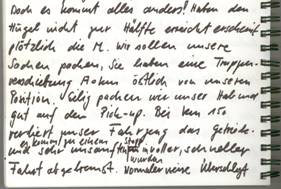 Doch es kommt alles anders! Haben den
Hügel nicht zur Hälfte erreicht erscheint
plötzlich die M. wir sollen unsere
Sachen packen, Sie haben eine Truppen-
verschiebung östlich von unserer
Position. Eilig packen wir unser Hab und
gut auf den Pick-up. Bei km 150
verliert unser Fahrzeug das getriebe
es kommt zu einem Stopp
und sehr unsanft in voller, schneller
wurden
Fahrt abgebremst. Normalerweise